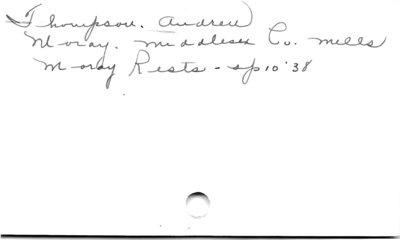 Thompson. Andrew
Moray. Middlesex Co. mills
Moray Rests - sp 10 '38